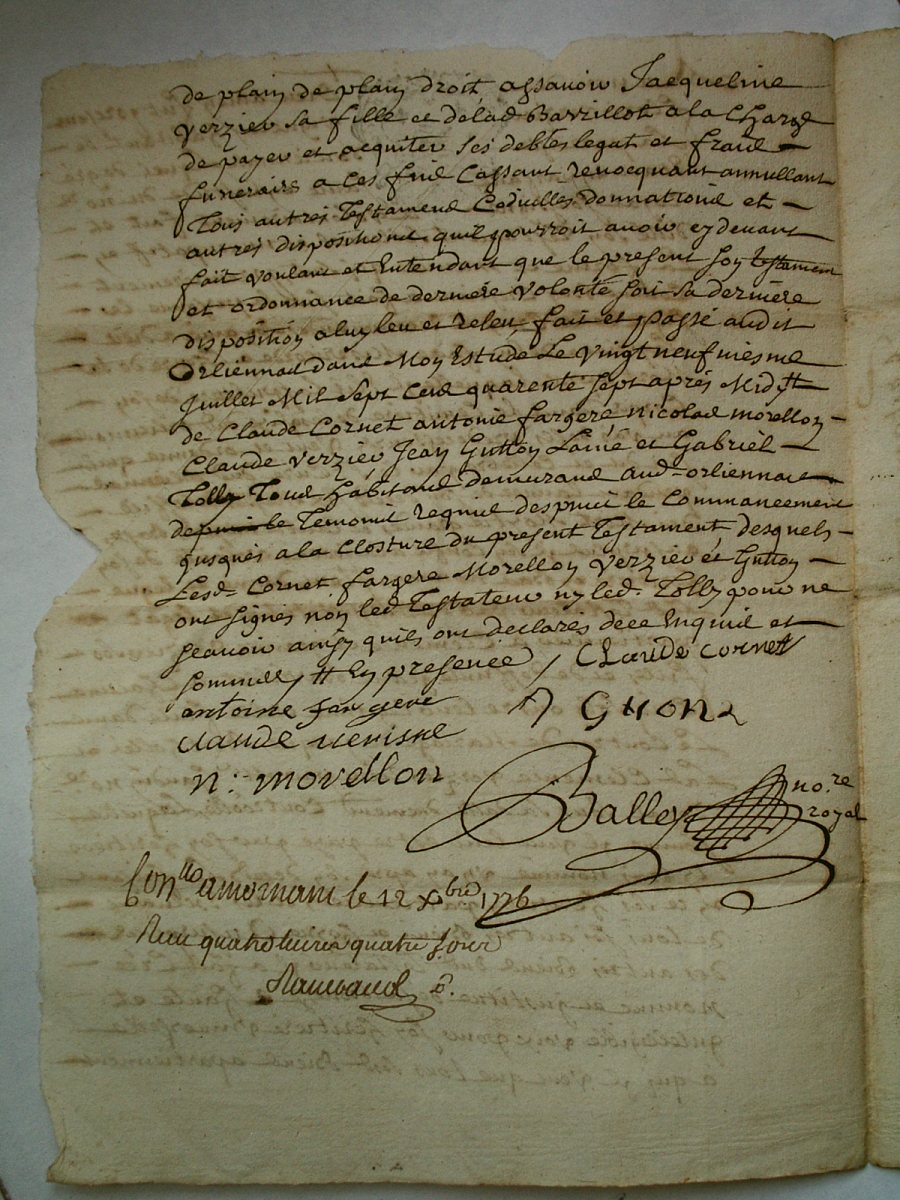 de plain de plain droit assavoir Jacqueline
Verzier sa fille et delad Barzillot a la Charge
de payer et acquiter ses debtes legat et fraid
funeraire a ces find Cassant Revocquant annullant
Tous autres Testamend Codicilles donnationd et
autres dispositiond quil pourroit avoir cydevant
fait voulant et Entendant que le present son testament
et ordonnance de derniere volonté soit sa derniere
disposition a luy leu et releu fait et passé audit
Orliennad dans Mon Estude Le vingt neufviesme
Juillet Mil Sept Cend quarente sept aprés Midy #
de Claude Cornet antoine fargere nicolad morellon
Claude Verzier Jean Gutton Lainé et Gabriël
Tolly Toud habitand demurand aud. orliennad
Temoind Requid despuid le Commancement
jusques a la Closture du present Testament desquels
Lesd. Cornet fargere Morellon Verzier et Gutton
ont signés non led Testateur ny led. Tolly pour ne
scavoir ainsy quils ont declarés de ce Enquid et
sommed # En presence / Claude cornet
antoine fargere
G u ton
claude
n: morellon
Balley no.re
royal
Con.llé a mornant le 12 xbre 1776
Receu quatre livres quatre sous